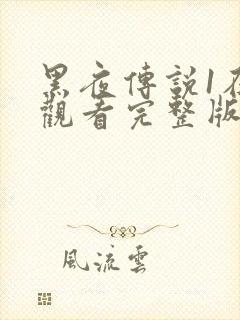 黑夜傳說1在
觀看完整版
風流雲